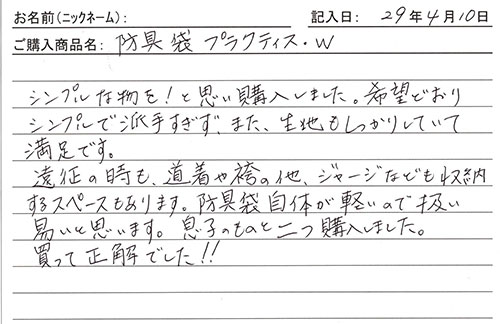 お名前(ニックネーム): 記入日: 29年4月10日
ご購入商品名: 防具袋 プラクティス・W
シンプルな物を!と思い購入しました。希望どおり
シンプルで派手すぎず、また、生地もしっかりしていて
満足です。
遠征の時も、道着や袴の他、ジャージなども収納
するスペースもあります。防具袋自体が軽いので扱い
易いと思います。息子のものと二つ購入しました。
買って正解でした!!